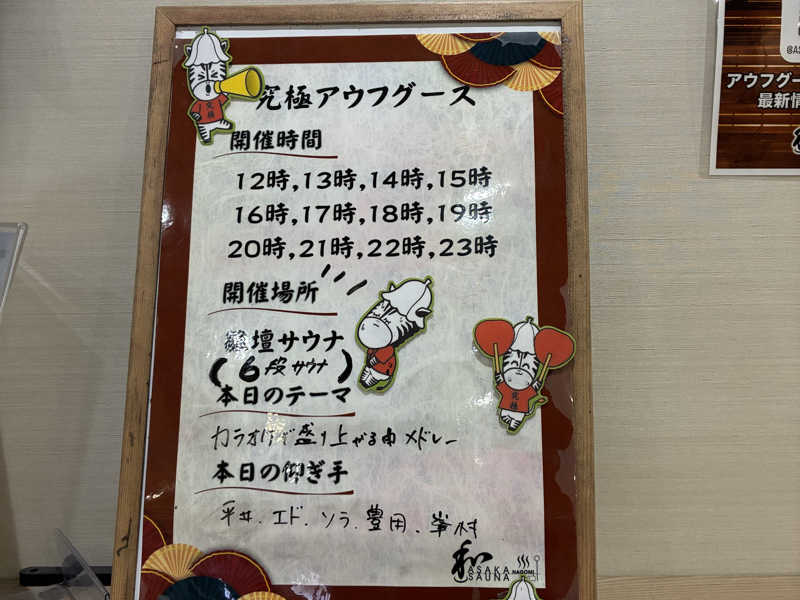 究極アウフグース
開催時間
12時,13時,14時,15時
16時,17時,18時,19時
20時,21時,22時,23時
開催場所
雛壇サウナ
(6段サウナ)
本日のテーマ
カラオケで盛り上がる曲メドレー
本日の仰ぎ手
平井、エド、ソラ、豊田、峯村
和
ASAKA
SAUNA
NAGOMI
究極
究極
アウフグー
最新情